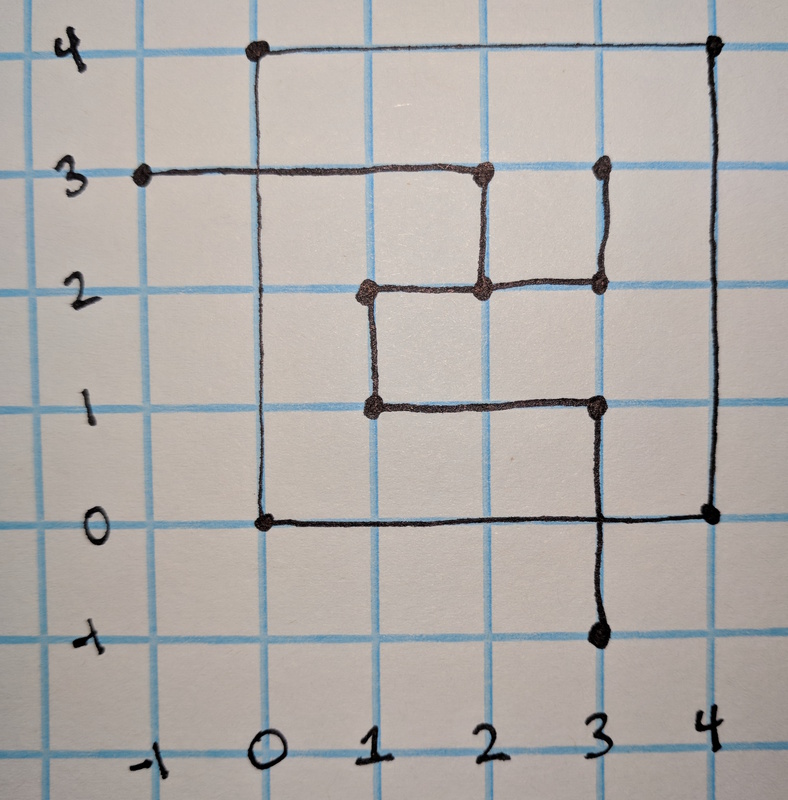 4
3
2
1
0
-1
-1 0 1 2 3 4